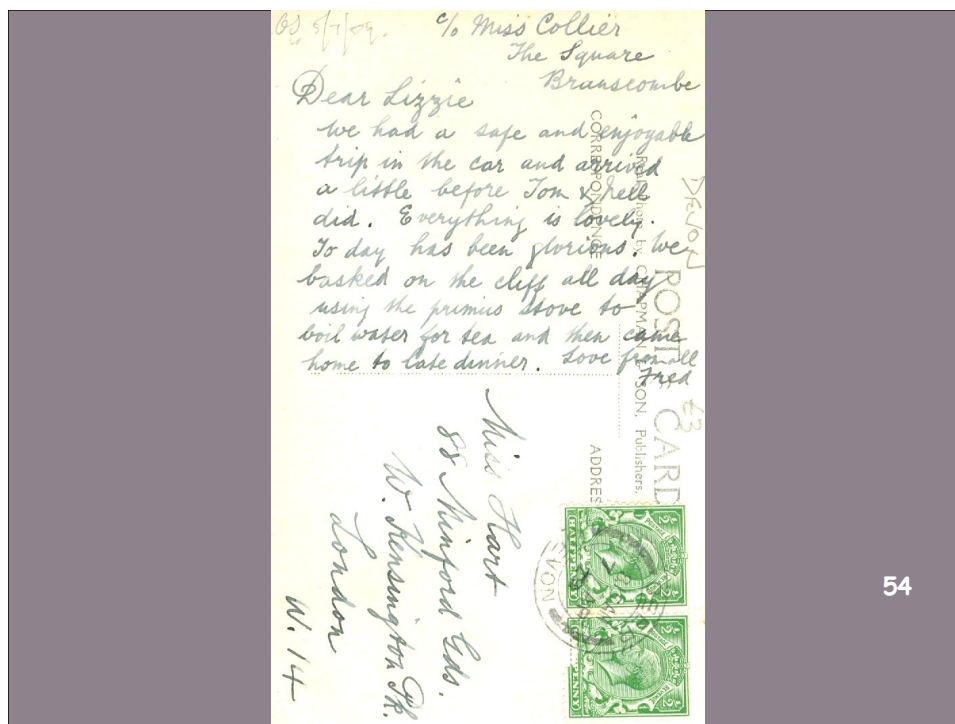 c/o Miss Collier
The Square
Branscombe
Dear Lizzie
we had a safe and enjoyable
trip in the car and arrived
a little before Tom & Nell
did. Everything is lovely.
To day has been glorious. We
basked on the cliff all day
using the primus stove to
boil water for tea and then came
home to late dinner. Love from all
Fred
DEVON
£3
POST CARD
CHAPMAN & SON, Publishers,
CORRESPONDENCE
ADDRESS
Miss Hart
88 Minford Gds.
W. Kensington Pk.
London
W. 14
HALFPENNY
DEVON
54